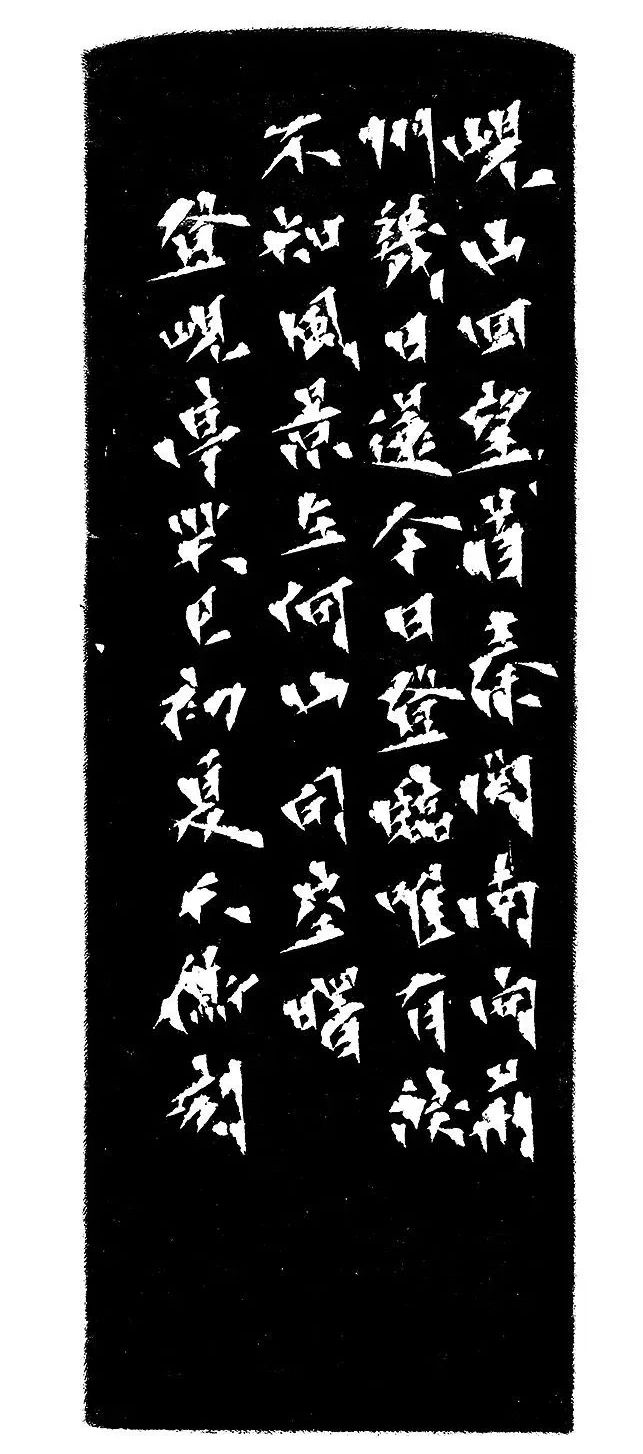 峴山回望首秦關南向荊
州幾日還今日登臨唯有淚
不知風景在何山司空曙
登峴亭癸巳初夏天衡刻